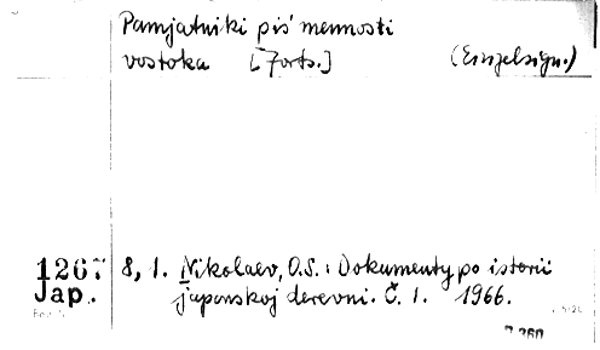 Pamjatniki pis'mennosti
vostoka [Forts.] (Einzelsign.)
1267 8, 1. Nikolaev, O.S.: Dokumenty po istorii
Jap. japonskoj derevni. Č. 1. 1966.